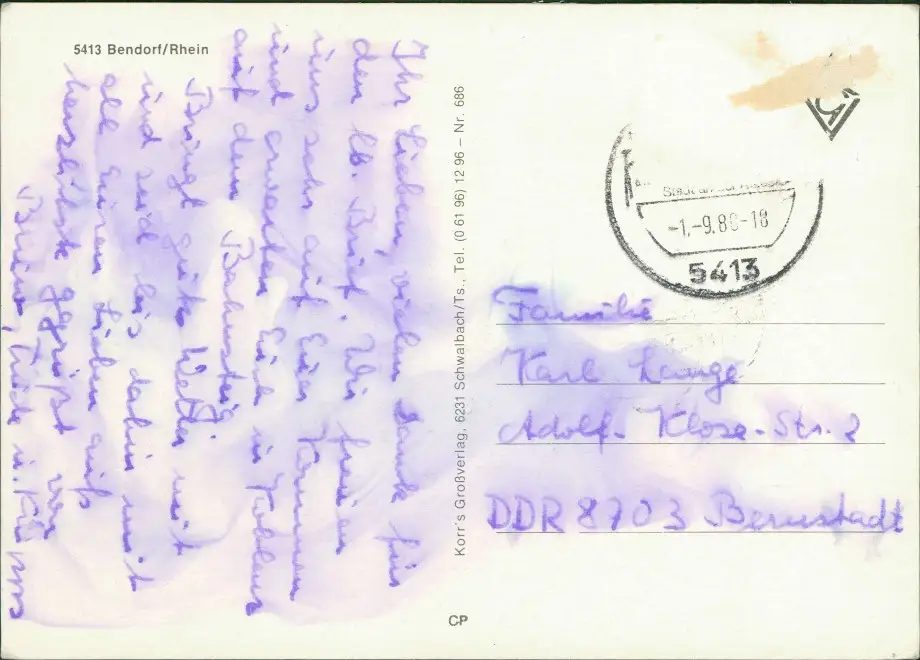 5413 Bendorf/Rhein
Ihr Lieben, vielen Dank für
den lb. Brief. Wir freuen
uns sehr auf Euer Kommen
und erwarten Euch in Koblenz
auf dem Bahnsteig.
Bringt gutes Wetter mit
und seid bis dahin mit
all Euren Lieben aufs
herzlichste gegrüßt von
Korr's Großverlag, 6231 Schwalbach/Ts., Tel. (0 61 96) 12 96 – Nr. 686
CP
-1.-9.8 -18
5413
Familie
Karl Lange
Adolf-Klose-Str. 2
DDR 8703 Bernstadt